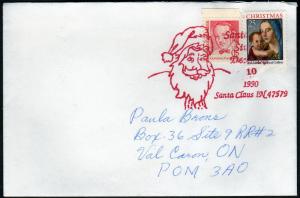 CHRISTMAS
Santa
St
Dec
10
1990
Santa Claus IN 47579
Paula Brons
Box 36 Site 9 RR#2
Val Caron, ON
POM 3A0